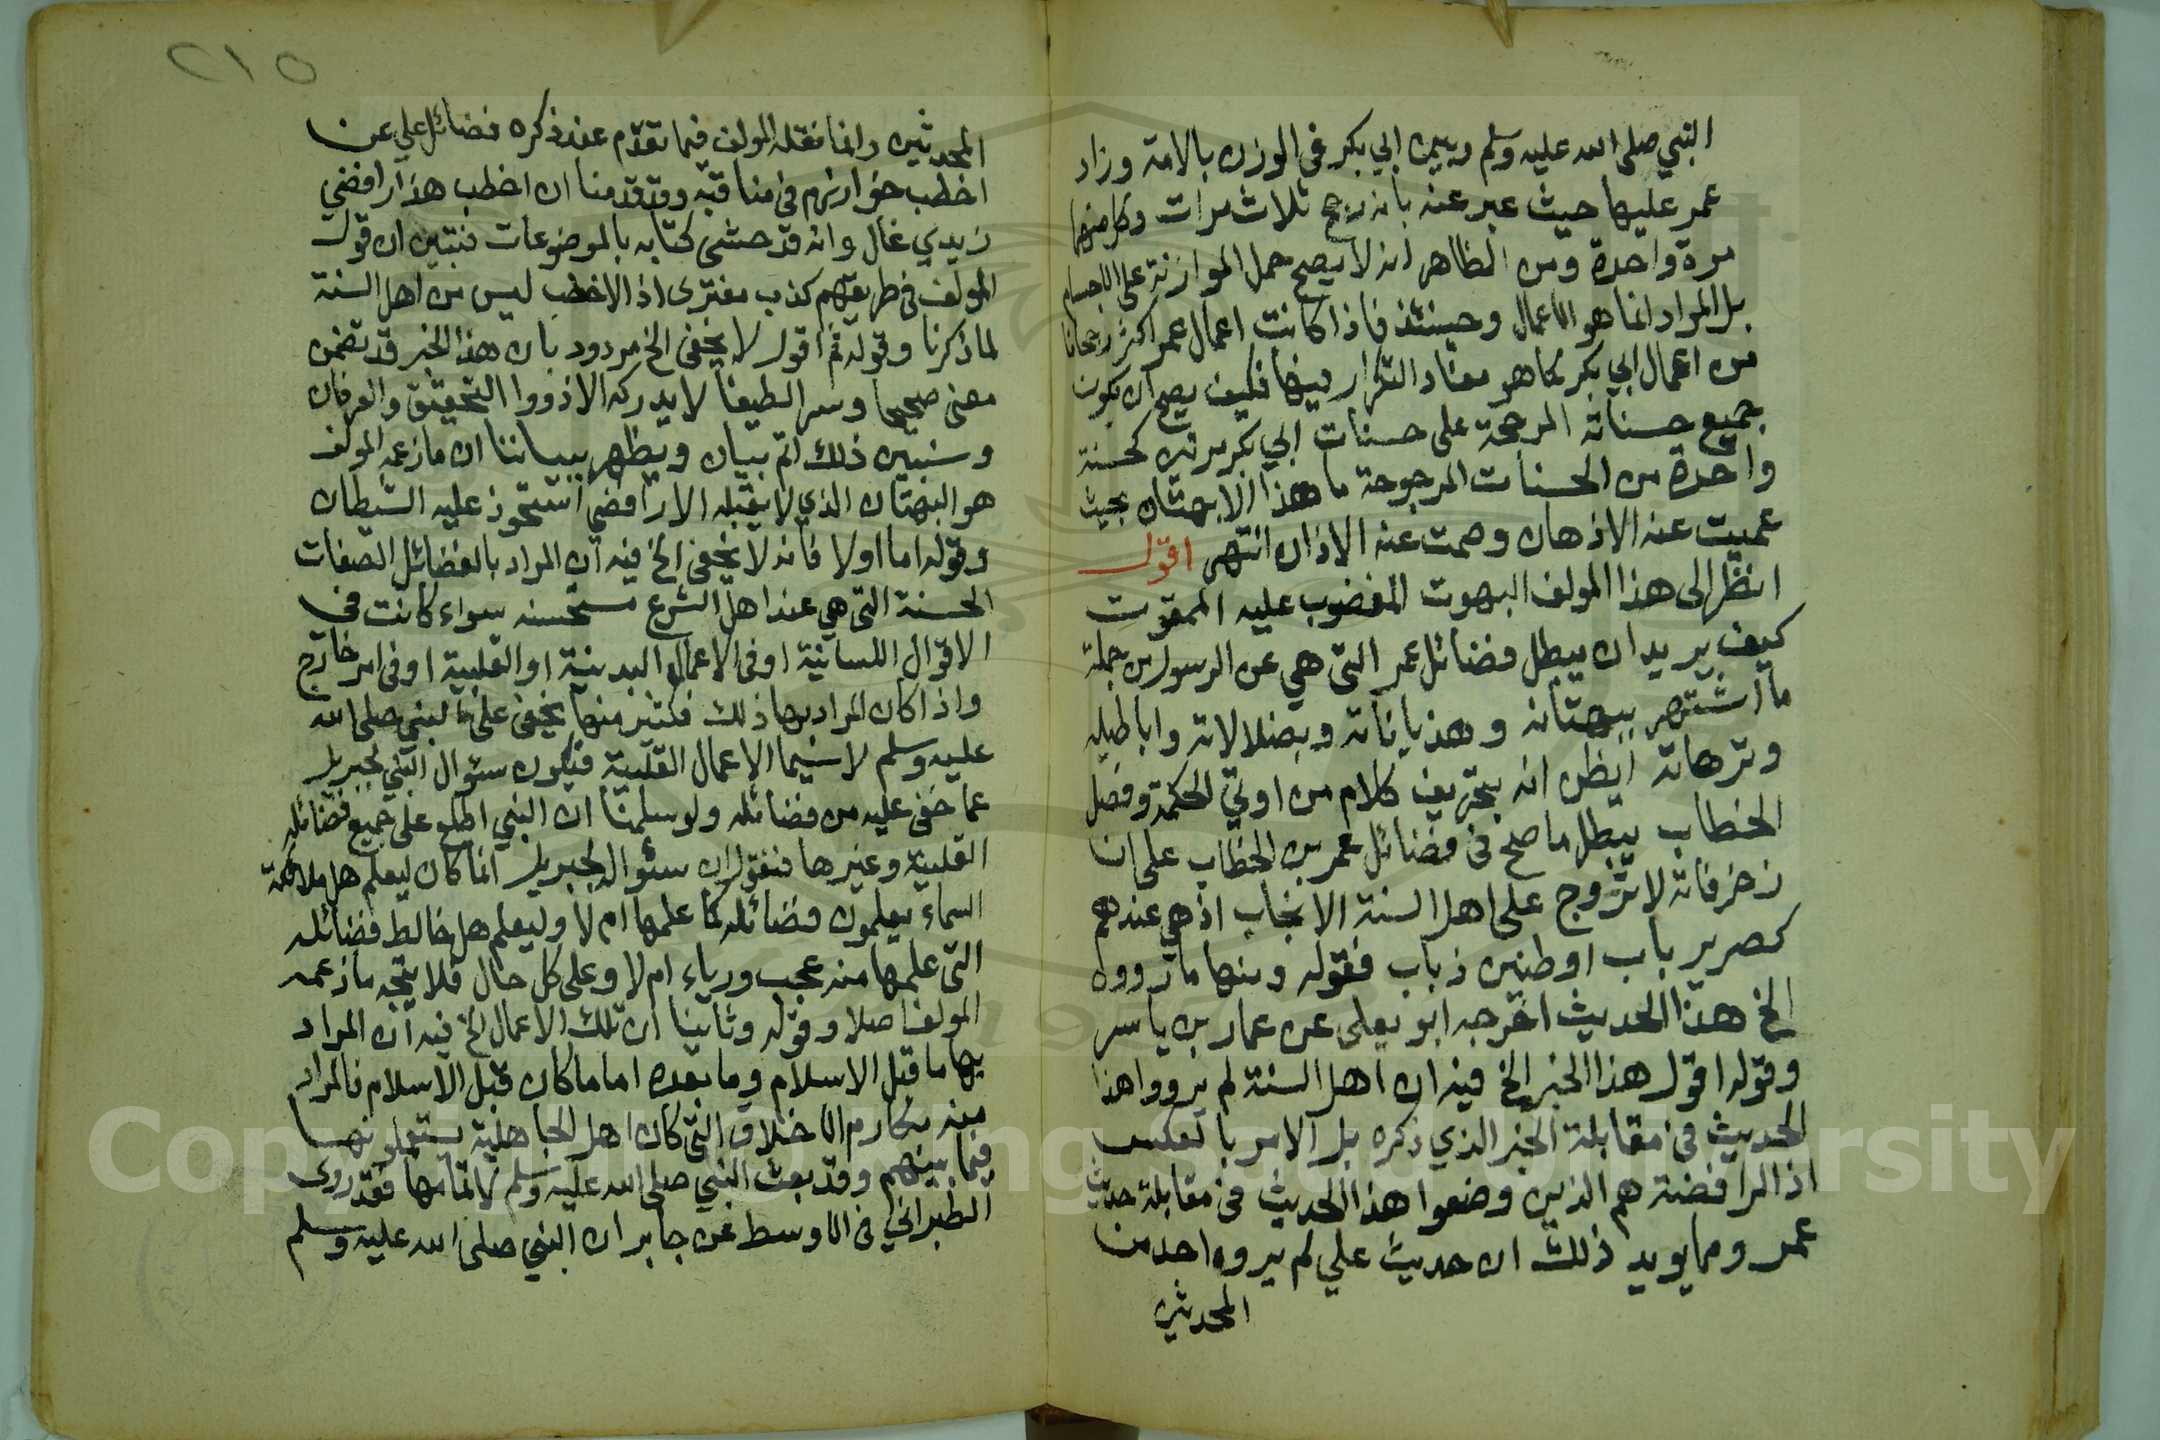 النبي صلى الله عليه وسلم وبين ابي بكر في الوزن بالامة وزاد
عمر عليها حيث عبر عنه بانه رجح ثلاث مرات وكل منهما
مرة واحدة ومن الظاهر انه لا يصح حمل الموازنة على الاجسام
بل المراد انما هو الاعمال وحينئذ فاذا كانت اعمال عمر اكثر رجحانا
من اعمال ابي بكر كما هو مفاد التكرار فيها فكيف يصح ان يكون
جميع حسناته المرجحة على حسنات ابي بكر مرتين كحسنة
واحدة من الحسنات المرجوحة ما هذا الا بهتان بحيث
عميت عنه الاذهان وصمت عنه الاذان انتهى اقول
انظر الى هذا المولف البهوت المغضوب عليه الممقوت
كيف يريد ان يبطل فضائل عمر التي هي عن الرسول من جملة
ما اشتهر ببهتانه وهذياناته وبضلالاته واباطيله
وترهاته ايظن انه بتحريف كلام من اوتي الحكمة وفصل
الخطاب يبطل ما صح في فضائل عمر بن الخطاب على ان
زخرفاته لا تروج على اهل السنة الانجاب اذ هي عندهم
كصرير باب او طنين ذباب فقوله ومنها ما رووه
الخ هذا الحديث اخرجه ابو يعلى عن عمار بن ياسر
وقوله اقول هذا الخبر الخ فيه ان اهل السنة لم يرووا هذا
الحديث في مقابلة الخبر الذي ذكره بل الامر بالعكس
اذ الرافضة هم الذين وضعوا هذا الحديث في مقابلة حديث
عمر ومما يويد ذلك ان حديث علي لم يروه احد من
المحدثين
٢١٥
المحدثين وانما نقله المولف فيما تقدم عند ذكره فضائل علي عن
اخطب خوارزم في مناقبه وقد قدمنا ان اخطب هذا رافضي
زيدي غال وانه قد حشى كتابه بالموضوعات فتبين ان قول
المولف في طريقهم كذب مفترى اذ الاخطب ليس من اهل السنة
لما ذكرنا وقوله ثم اقول لا يخفى الخ مردود بان هذا الخبر قد تضمن
معنى صحيحا وسرا لطيفا لا يدركه الا ذووا التحقيق والعرفان
وسنبين ذلك اتم بيان ويظهر ببياننا ان ما زعمه المولف
هو البهتان الذي لا يقبله الا رافضي استحوذ عليه الشيطان
وقوله اما اولا فانه لا يخفى الخ فيه ان المراد بالفضائل الصفات
الحسنة التي هي عند اهل الشرع مستحسنه سواء كانت في
الاقوال اللسانية او في الاعمال البدنية او القلبية او في امر خارج
واذا كان المراد بها ذلك فكثير منها يخفى على النبي صلى الله
عليه وسلم لا سيما الاعمال القلبية فيكون سئوال النبي لجبريل
عما خفى عليه من فضائله ولو سلمنا ان النبي اطلع على جميع فضائله
القلبية وغيرها فنقول ان سئواله لجبريل انما كان ليعلم هل ملائكة
السماء يعلمون فضائله كما علمها ام لا وليعلم هل خالط فضائله
التي علمها منه عجب ورياء ام لا وعلى كل حال فلا يتجه ما زعمه
المولف اصلا وقوله وثانيا ان تلك الاعمال الخ فيه ان المراد
بها ما قبل الاسلام وما بعده اما ما كان قبل الاسلام فالمراد
منه مكارم الاخلاق التي كان اهل الجاهلية يستعملونها
فيما بينهم وقد بعث النبي صلى الله عليه وسلم لاتمامها فقد روى
الطبراني في الاوسط عن جابر ان النبي صلى الله عليه وسلم
Copyright © King Saud University